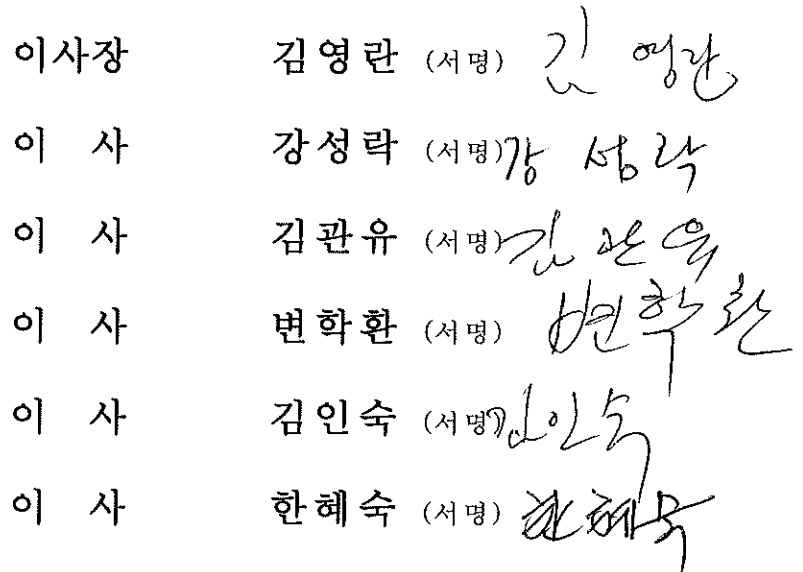 이사장 김영란 (서명) 김 영란
이 사 강성락 (서명) 강 성락
이 사 김관유 (서명) 김 관유
이 사 변학환 (서명) 변학환
이 사 김인숙 (서명) 김인숙
이 사 한혜숙 (서명) 한혜숙